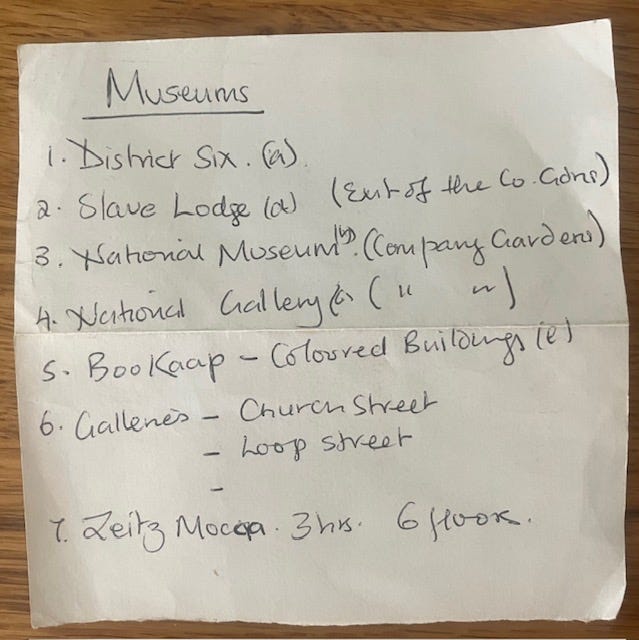 Museums
1. District Six. (a)
2. Slave Lodge (a) (Ent of the Co. Gdns)
3. National Museum (b). (Company Gardens)
4. National Gallery ( " " )
5. BooKaap - Coloured Buildings (e)
6. Galleries - Church Street
- Loop street
-
7. Zeitz Mocaa. 3 hrs. 6 floors.